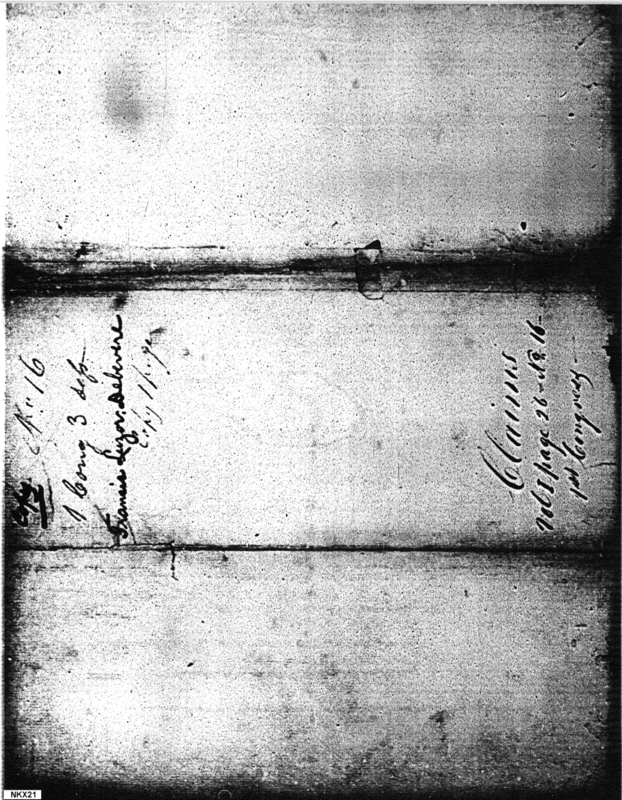 Copy No. 16
1 Cong 3 Ses
Francis Suzor Debevere
Copy 1 page
Claims
vol 1 page 26 - No. 16 -
1st Congress -
NKX21